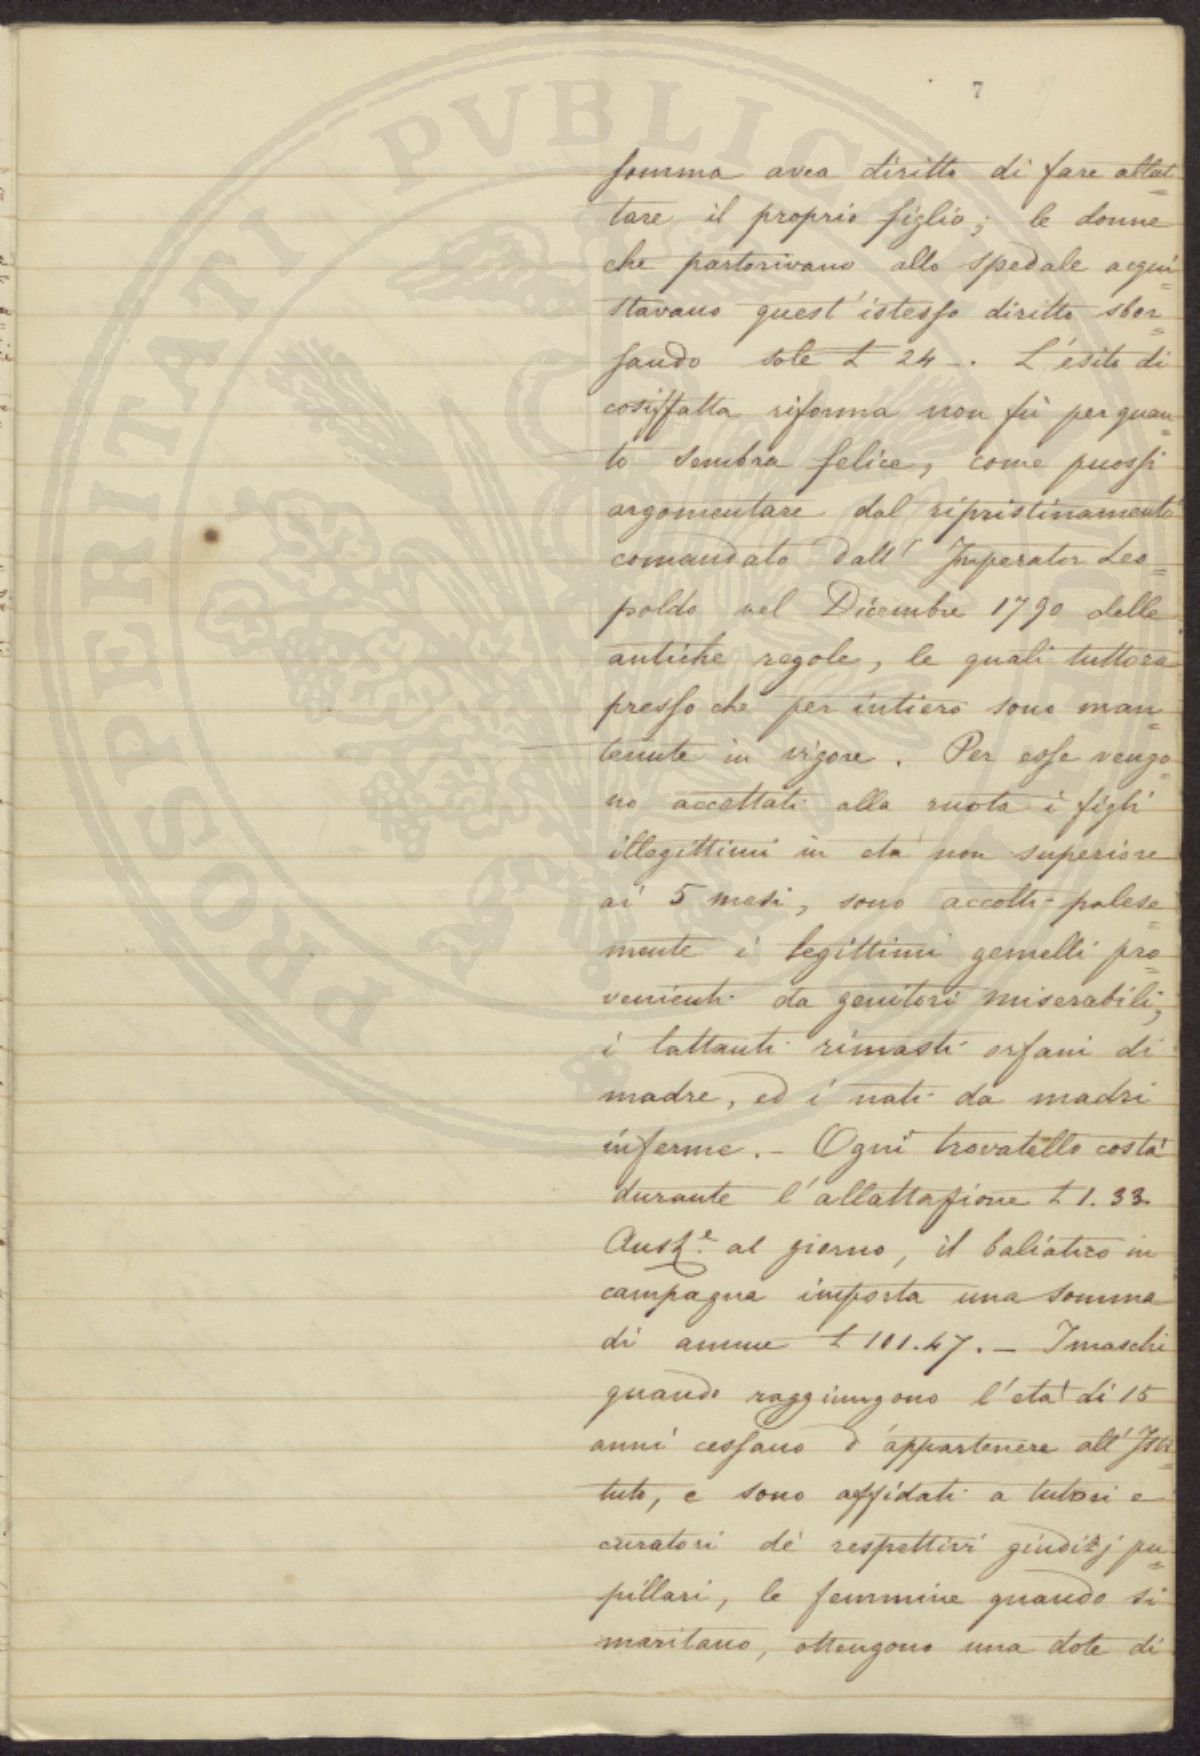 7
somma avea diritto di fare allat=
tare il proprio figlio; le donne
che partorivano allo spedale acqui=
stavano quest'istesso diritto sbor=
sando sole £ 24 -. L'esito di
cosiffatta riforma non fù per quan=
to sembra felice, come puossi
argomentare dal ripristinamento
comandato dall'Imperator Leo=
poldo nel Dicembre 1790 delle
antiche regole, le quali tuttora
presso che per intiero sono man=
tenute in vigore. Per esse vengo=
no accettati alla ruota i figli
illegittimi in età non superiore
ai 5 mesi, sono accolti palese=
mente i legittimi gemelli pro=
venienti da genitori miserabili,
i lattanti rimasti orfani di
madre, ed i nati da madri
inferme. - Ogni trovatello costa
durante l'allattazione £ 1.33.
Aust.e al giorno, il baliatico in
campagna importa una somma
di annue £ 101.47. - I maschi
quando raggiungono l'età di 15
anni cessano d'appartenere all'Isti=
tuto, e sono affidati a tutori e
curatori de' respettivi giudizj pu=
pillari, le femmine quando si
maritano, ottengono una dote di
PROSPERITATI PVBLICAE